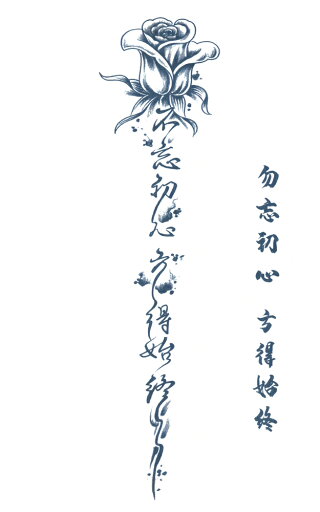 不忘初心方得始终
勿忘初心 方得始终